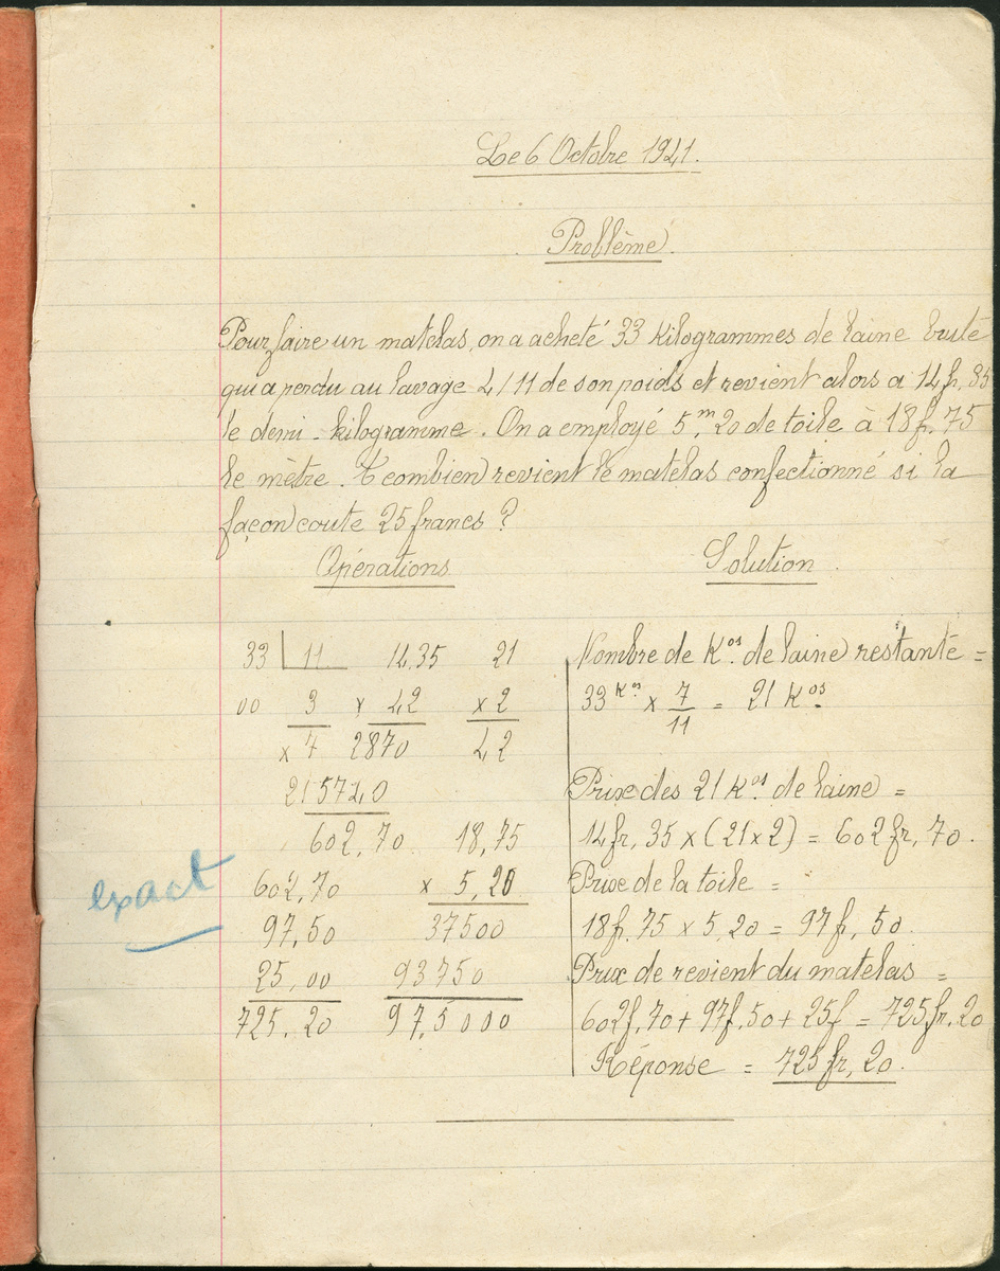 Le 6 Octobre 1941.
Problème.
Pour faire un matelas, on a acheté 33 kilogrammes de laine brute
qui a perdu au lavage 4/11 de son poids et revient alors a 14 fr, 35
le demi-kilogramme. On a employé 5,m 20 de toile à 18 f. 75
le mètre. A combien revient le matelas confectionné si la
façon coute 25 francs ?
Opérations
33 | 11 14,35 21
00 3 x 42 x 2
x 7 2870 42
21 5740
602,70 18,75
602,70 x 5,20
exact
97,50 37500
25,00 93750
725,20 97,5000
Solution
Nombre de Kos. de laine restante =
33 Kos x 7/11 = 21 Kos.
Prix des 21 Kos. de laine =
14 fr, 35 x (21 x 2) = 602 fr, 70.
Prix de la toile =
18 f. 75 x 5,20 = 97 f, 50.
Prix de revient du matelas =
602 f, 70 + 97 f, 50 + 25 f = 725 fr, 20
Réponse = 725 fr, 20.